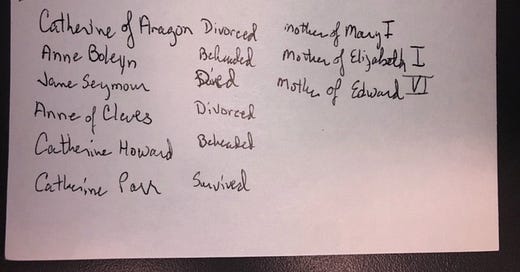 Catherine of Aragon Divorced mother of Mary I
Anne Boleyn Beheaded Mother of Elizabeth I
Jane Seymour Died Mother of Edward VI
Anne of Cleves Divorced
Catherine Howard Beheaded
Catherine Parr Survived